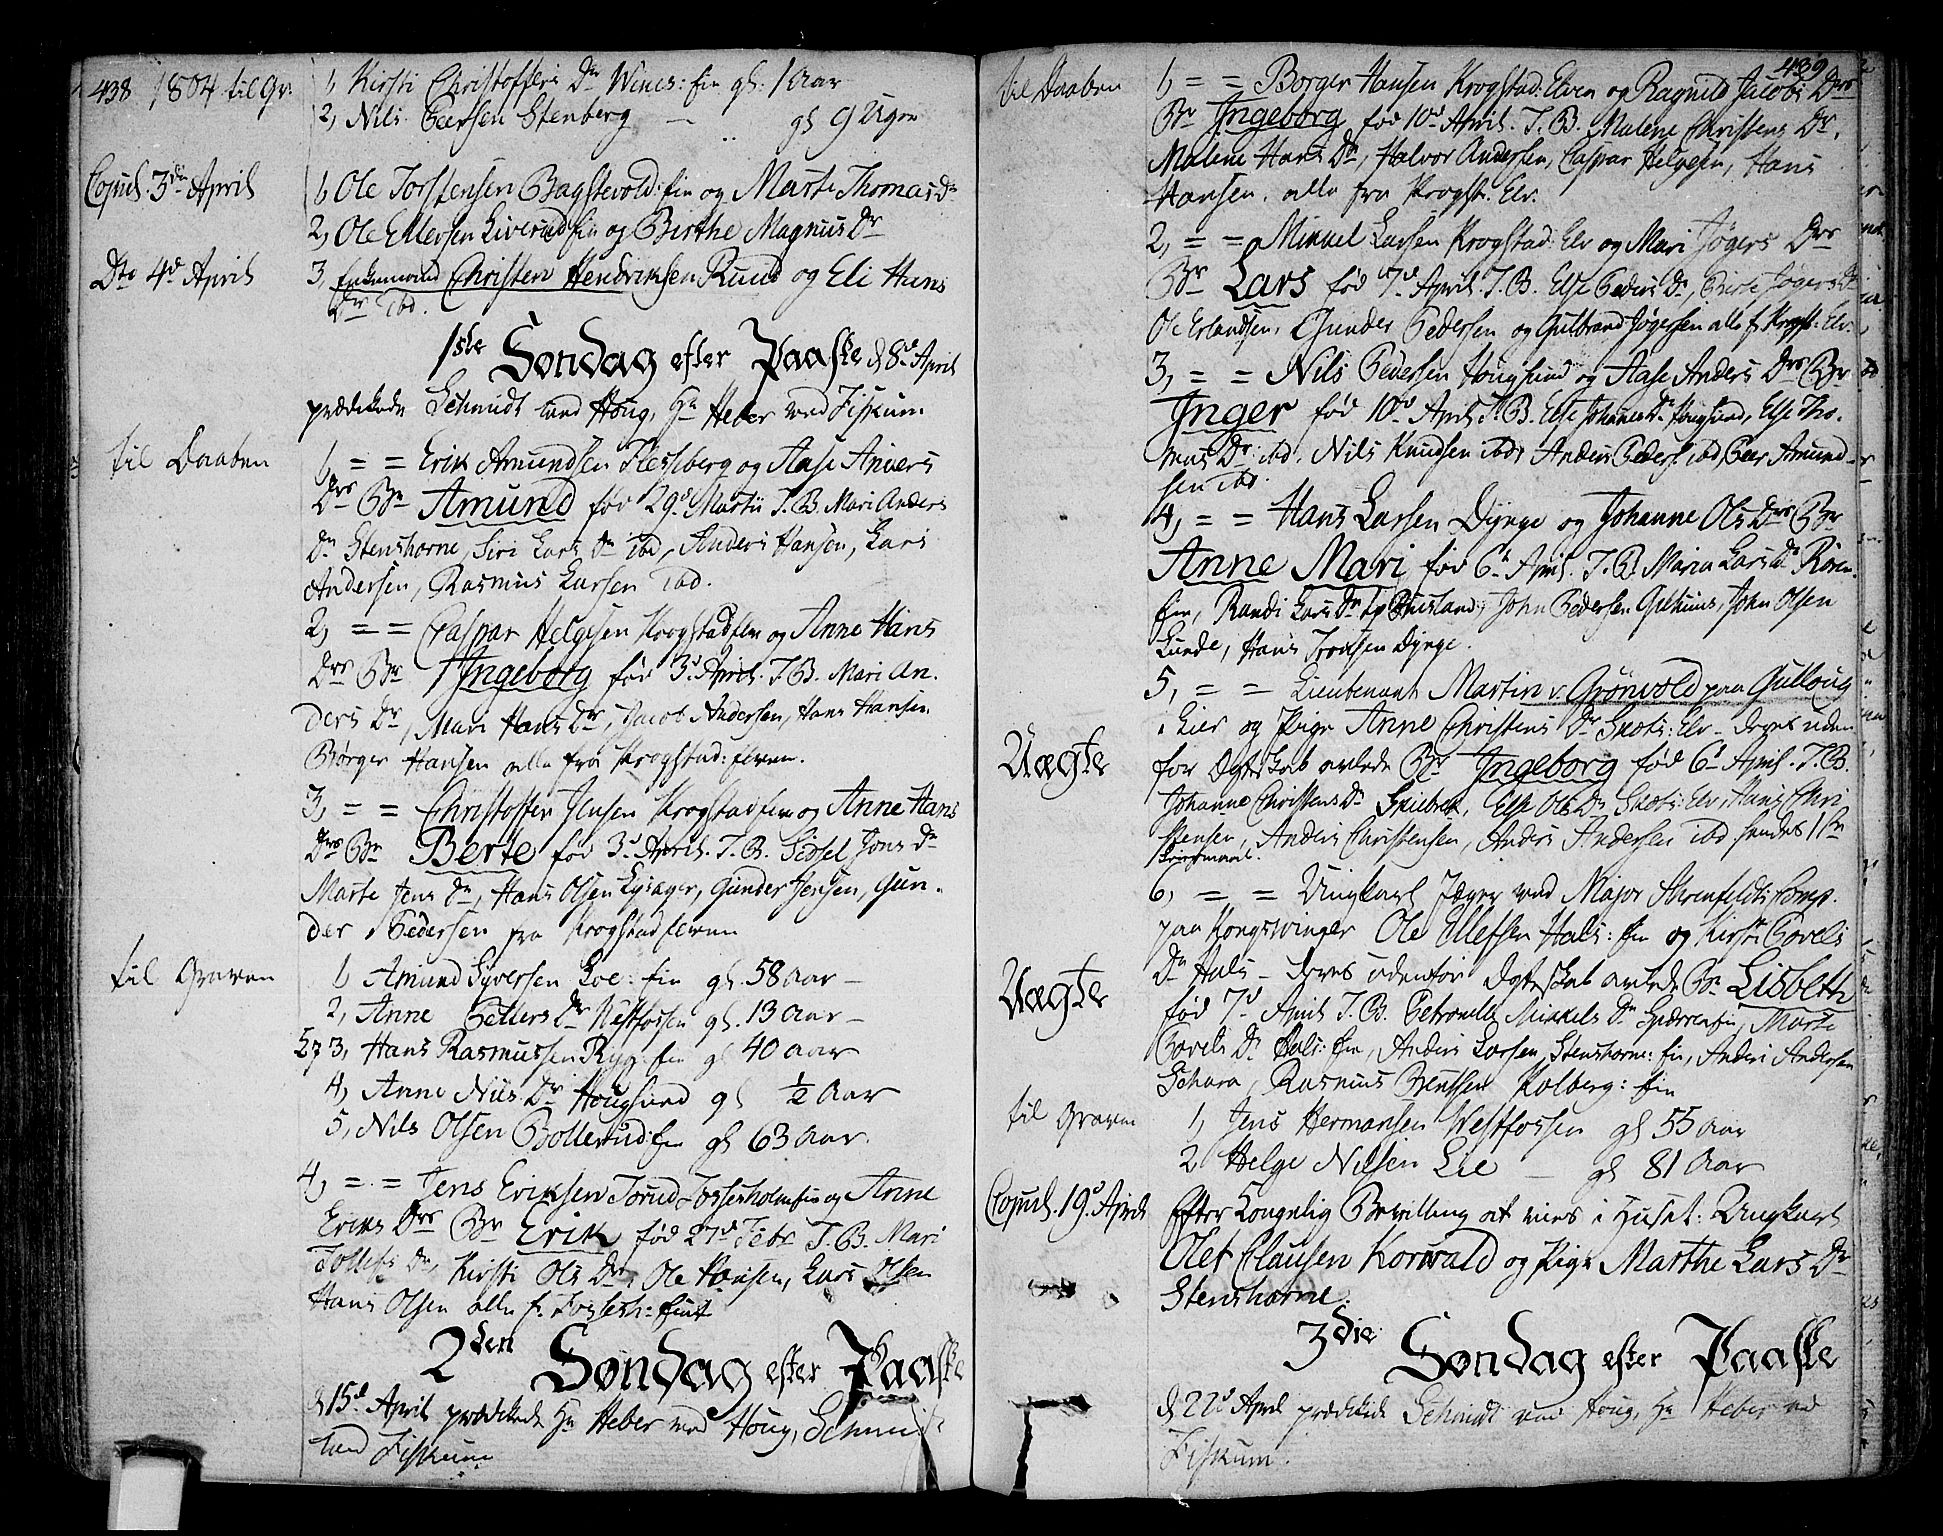 438 1804 til Gr:
1, Kirsti Christoffers Dr Vines: ein gl: 1 Aar
2, Nils Peersen Stenberg — gl 9 Ugor
Copul. 3de April
1, Ole Torstensen Bagstevold: ein og Marte Thomas Dr
2, Ole Ellersen Liverud ein og Birthe Magnus Dr
Dto 4de April
3, Enkemand Christen Hendriksen Ruud og Eli Hans
Dr ibd.
1ste Søndag efter Paaske d 8d April
prædikede Schmidt ved Houg, Hr Heber ved Fiskum
til Daaben
1, = = Erik Amundsen Flesseberg og Aase Anders
Drs Br Amund fød 29d Martii T. B. Mari Anders
Dr Stenshorne, Siri Lars Dr ibd, Anders Hansen, Lars
Andersen, Rasmus Larsen ibd.
2, = = Caspar Helgesen Krogstadelven og Anne Hans
Drs Br Ingeborg fød 3d April. T. B. Mari An-
ders Dr, Mari Hans Dr, Jacob Andersen, Hans Hansen
Børger Hansen alle fra Krogstad: elven.
3, = = Christoffer Jensen Krogstadelven og Anne Hans
Drs Br Berte fød 3d April. T. B. Sidsel Jons Dr
Marte Jens Dr, Hans Olsen Lysager, Gunder Jensen, Gun-
der Pedersen fra Krogstadelven
til Graven
1, Amund Syversen Loe: ein gl. 58 Aar —
2, Anne Petters Dr Westfossen gl. 13 Aar —
27 3, Hans Rasmussen Ryg: ein gl 40 Aar
4, Anne Nils Dr Hougsund gl ½ Aar
5, Nils Olsen Bollerud: ein gl 63 Aar.
4, = = Jens Eriksen Torud og Anne
Eriks Drs Br Erik fød 27d Febr T. B. Mari
Tollefs Dr, Kirsti Ols Dr, Ole Hansen, Lars Olsen
Hans Olsen alle f. Fossesh: eint
2den Søndag efter Paaske
d 15d April prædikede Hr Heber ved Houg, Schmidt
ved Fiskum
439
til Daaben
1, = = Borger Hansen Krogstad: Elven og Ragnild Jacobs Drs
Br Ingeborg fød 10d April. T. B. Malene Christens Dr,
Malene Hans Dr, Halvor Andersen, Caspar Helgesen, Hans
Hansen. alle fra Krogst. Elv.
2, = = Mikkel Larsen Krogstad: Elv og Mari Jøgers Drs
Br Lars fød 7d April. T. B. Else Peders Dr, Birte Jøgers Dr
Ole Erlandsen, Gunder Pedersen og Gulbrand Jøgersen alle f. Krogst: Elv.
3, = = Nils Pedersen Hougsund og Aase Anders Drs Br
Inger fød 10d April T. B. Else Johannes Dr Hougsund, Else Tho-
mas Dr ibd, Nils Knudsen ibd, Anders Peders. ibd, Peer Amund-
sen ibd.
4, = = Hans Larsen Dynge og Johanne Ols Drs Br
Anne Mari fød 6d April. T. B. Maria Lars Dr Røren-
ein, Randi Lars Dr, John Pedersen, John Olsen
Lunde, Hans Trondsen Dynge.
5, = = Lieutenant Martin v. Grønvold paa Gulloug
i Lier og Pige Anne Christens Dr Skots: Elv - deres uden
Uægte
for Ægteskab avlede Br Ingeborg fød 6d April. T. B.
Johanne Christens Dr Skiebrek, Else Ols Dr Skots: Elv, Hans Chri
stensen, Anders Christensen, Anders Andersen ibd hendes 1ste
6, = = Ungkarl Jæger ved Major Comp.
paa Kongswinger Ole Ellefsen Hals: ein og Kirsti Povels
Uægte
Dr Hals - deres udenfor Ægteskab avlede Br Lisbeth
fød 7d April T. B. Petronelle Mikkels Dr Sperrenein, Marte
Povels Dr Hals: ein, Anders Larsen Stenshorne: ein, Anders Andersen
Schara, Rasmus Berntsen Kolberg: ein
til Graven
1, Jens Hermansen Westfossen gl 55 Aar
2, Helge Nilsen Lie — gl 81 Aar
Copul. 19d April
Efter Kongelig Bevilling at vies i Huset: Ungkarl
Olet Clausen Korwald og Pige Marthe Lars Dr
Stenshorne.
3die Søndag efter Paaske
d 22d April prædikede Schmidt ved Houg, Hr Heber ved
Fiskum.